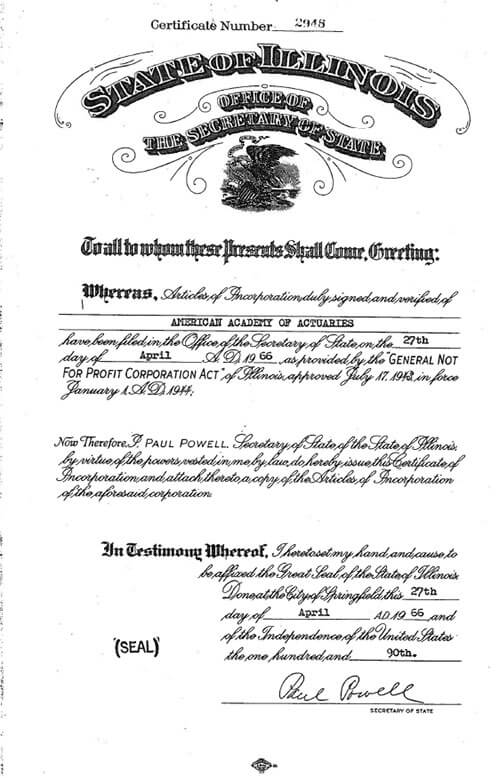 Certificate Number 2948
STATE OF ILLINOIS
OFFICE OF
THE SECRETARY OF STATE
To all to whom these Presents Shall Come, Greeting:
Whereas, Articles of Incorporation duly signed and verified of
AMERICAN ACADEMY OF ACTUARIES
have been filed in the Office of the Secretary of State on the 27th
day of April A.D. 1966, as provided by the "GENERAL NOT
FOR PROFIT CORPORATION ACT", of Illinois, approved July 17, 1943, in force
January 1, A.D. 1944;
Now Therefore, I, PAUL POWELL, Secretary of State, of the State of Illinois,
by virtue of the powers vested in me by law, do hereby issue this Certificate of
Incorporation and attach thereto a copy of the Articles of Incorporation
of the aforesaid corporation.
In Testimony Whereof, I hereto set my hand and cause to
be affixed the Great Seal of the State of Illinois.
Done at the City of Springfield this 27th
day of April A.D. 1966 and
of the Independence of the United States
(SEAL)
the one hundred and 90th.
Paul Powell
SECRETARY OF STATE